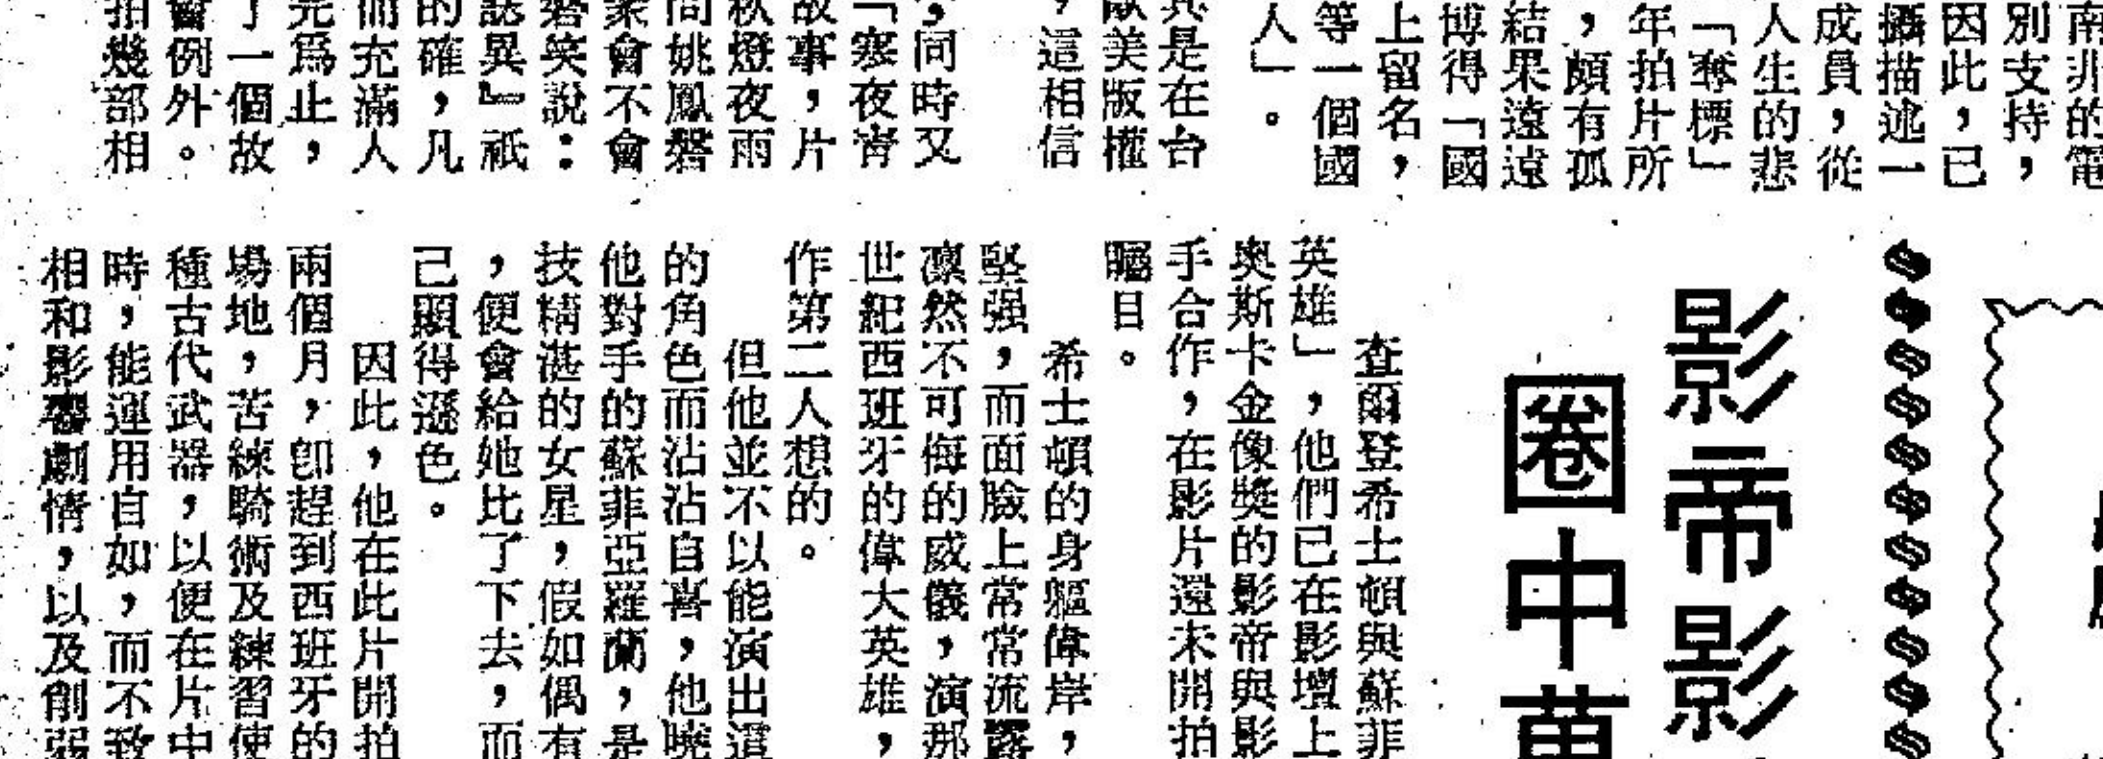 南非的電
別支持，
因此，已
攝描述一
成員，從
人生的悲
「奪標」
年拍片所
，頗有孤
結果遠遠
博得「國
上留名，
等一個國
人」。
其是在台
歐美版權
，這相信
，同時又
「寒夜青
故事，片
秋燈夜雨
問姚鳳磐
衆會不會
磐笑說：
誌異』祇
的確，凡
而充滿人
完爲止，
了一個故
會例外。
拍幾部相
影帝影
圈中萬
查爾登希士頓與蘇菲
英雄」，他們已在影壇上
奧斯卡金像獎的影帝與影
手合作，在影片還未開拍
矚目。
希士頓的身軀偉岸，
堅强，而面臉上常常流露
凛然不可侮的威儀，演那
世紀西班牙的偉大英雄，
作第二人想的。
但他並不以能演出這
的角色而沾沾自喜，他曉
他對手的蘇菲亞羅蘭，是
技精湛的女星，假如偶有
，便會給她比了下去，而
己顯得遜色。
因此，他在此片開拍
兩個月，卽趕到西班牙的
塲地，苦練騎術及練習使
種古代武器，以便在片中
時，能運用自如，而不致
相和影響劇情，以及削弱